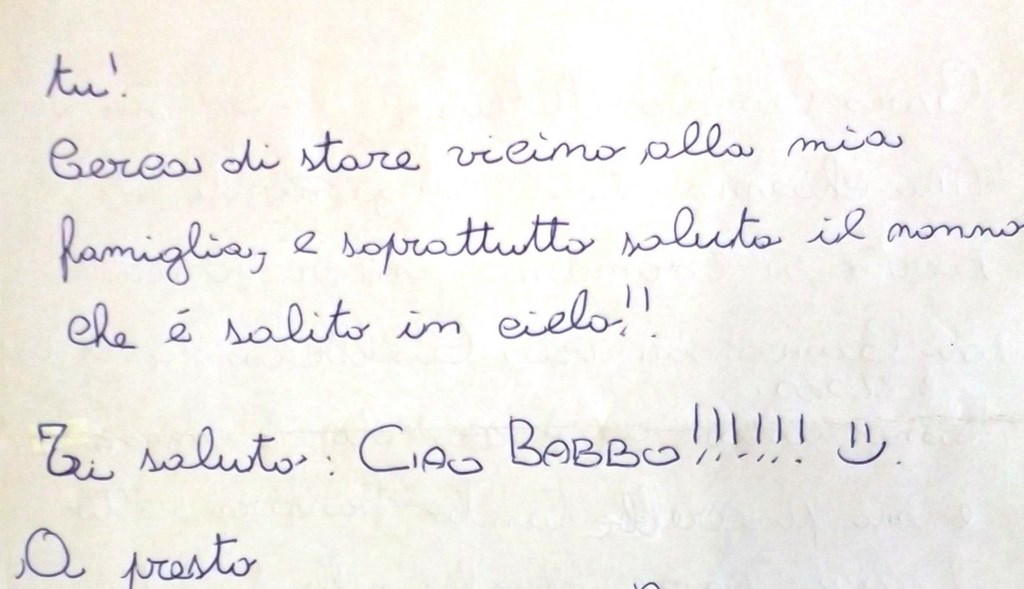 tu!
Cerca di stare vicino alla mia
famiglia, e soprattutto saluta il nonno
che é salito in cielo!!
Ti saluto: CIAO BABBO!!!!!! :)
A presto